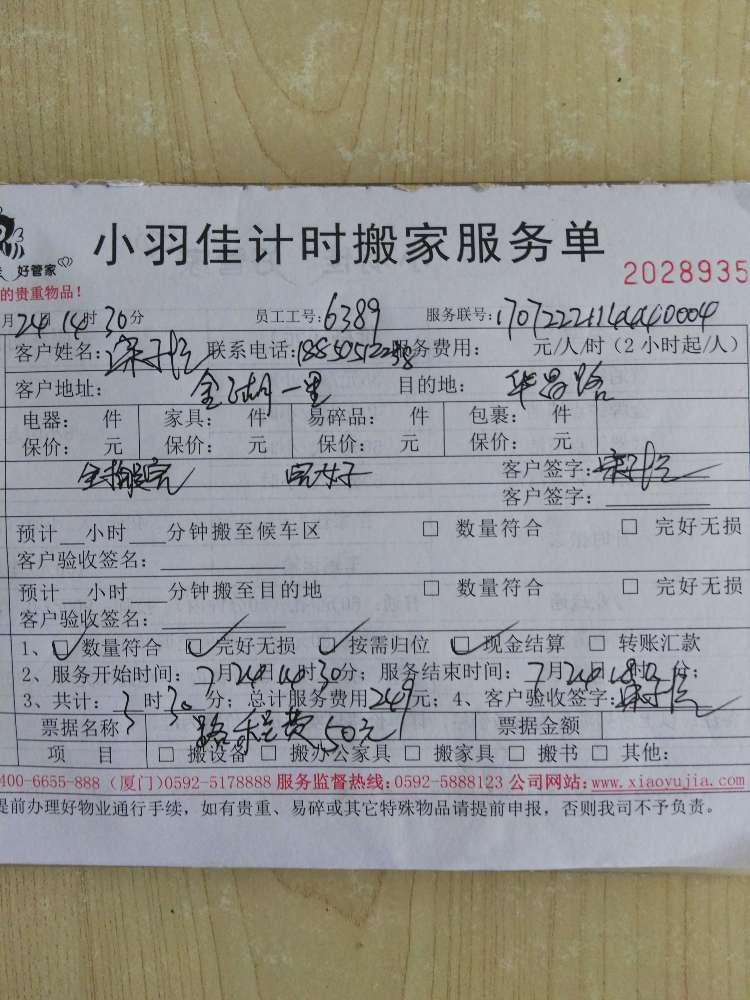 小羽佳计时搬家服务单
好管家
2028935
的贵重物品！
月24日14时30分 员工工号：6389 服务联号：
客户姓名： 联系电话： 服务费用： 元/人/时（2小时起/人）
客户地址： 金湖一里 目的地： 华昌路
电器： 件 家具： 件 易碎品： 件 包裹： 件
保价： 元 保价： 元 保价： 元 保价： 元
客户签字：
客户签字：
预计__小时__分钟搬至候车区 □ 数量符合 □ 完好无损
客户验收签名：
预计__小时__分钟搬至目的地 □ 数量符合 □ 完好无损
客户验收签名：
1、☑数量符合 ☑完好无损 ☑按需归位 ☑现金结算 □ 转账汇款
2、服务开始时间：7月24日14时30分；服务结束时间：7月24日18时 分；
3、共计：3时30分；总计服务费用249元；4、客户验收签字：
票据名称 路程费50元 票据金额
项 目 □ 搬设备 □ 搬办公家具 □ 搬家具 □ 搬书 □ 其他：
400-6655-888（厦门）0592-5178888 服务监督热线：0592-5888123 公司网站：www.xiaoyujia.com
提前办理好物业通行手续，如有贵重、易碎或其它特殊物品请提前申报，否则我司不予负责。